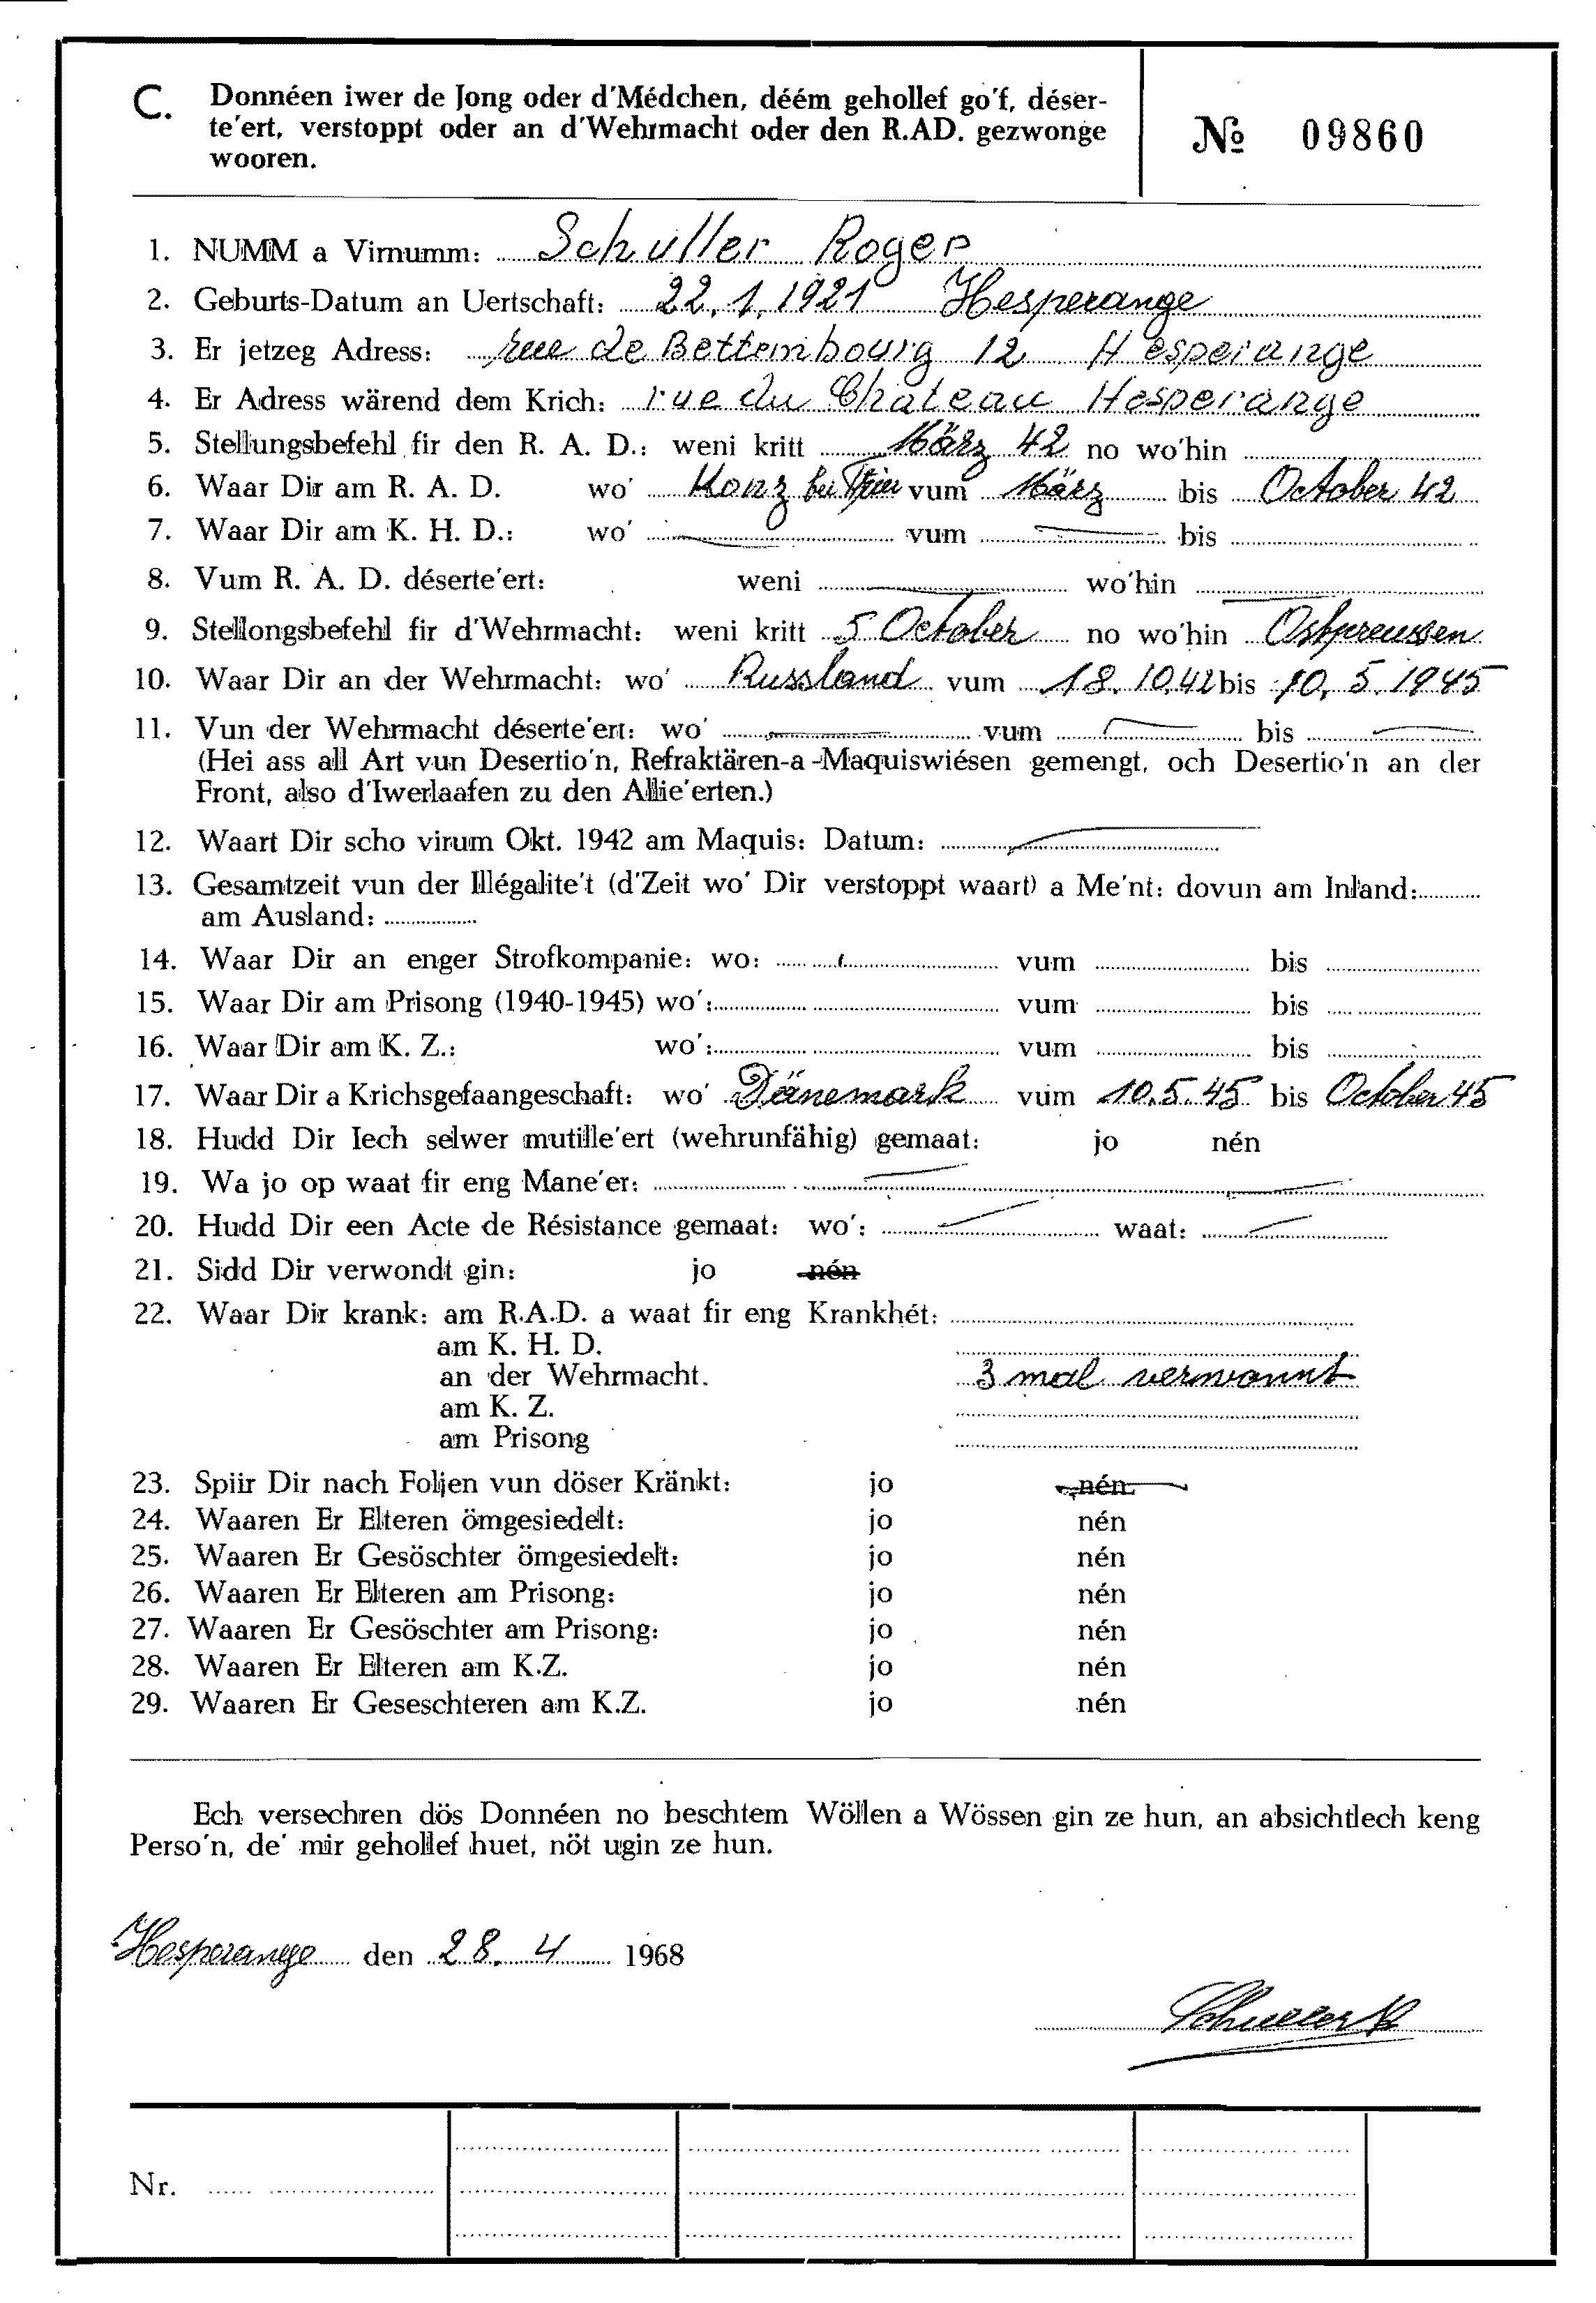 C. Donnéen iwer de Jong oder d'Médchen, déém gehollef go'f, déser-
te'ert, verstoppt oder an d'Wehrmacht oder den R.AD. gezwonge
wooren.
№ 09860
1. NUMM a Virnumm: Schuller Roger
2. Geburts-Datum an Uertschaft: 22.1.1921 Hesperange
3. Er jetzeg Adress: rue de Bettembourg 12 Hesperange
4. Er Adress wärend dem Krich: rue du Château Hesperange
5. Stellungsbefehl fir den R. A. D.: weni kritt März 42 no wo'hin
6. Waar Dir am R. A. D. wo' Konz bei Trier vum März bis October 42
7. Waar Dir am K. H. D.: wo' vum bis
8. Vum R. A. D. déserte'ert: weni wo'hin
9. Stellongsbefehl fir d'Wehrmacht: weni kritt 5 October no wo'hin Ostpreussen
10. Waar Dir an der Wehrmacht: wo' Russland vum 18.10.42 bis 10.5.1945
11. Vun der Wehrmacht déserte'ert: wo' vum bis
(Hei ass all Art vun Desertio'n, Refraktären-a-Maquiswiésen gemengt, och Desertio'n an der
Front, also d'Iwerlaafen zu den Allie'erten.)
12. Waart Dir scho virum Okt. 1942 am Maquis: Datum:
13. Gesamtzeit vun der Illégalite't (d'Zeit wo' Dir verstoppt waart) a Me'nt: dovun am Inland:
am Ausland:
14. Waar Dir an enger Strofkompanie: wo: vum bis
15. Waar Dir am Prisong (1940-1945) wo': vum bis
16. Waar Dir am K. Z.: wo': vum bis
17. Waar Dir a Krichsgefaangeschaft: wo' Dänemark vum 10.5.45 bis October 45
18. Hudd Dir Iech selwer mutille'ert (wehrunfähig) gemaat: jo nén
19. Wa jo op waat fir eng Mane'er:
20. Hudd Dir een Acte de Résistance gemaat: wo': waat:
21. Sidd Dir verwondt gin: jo nén
22. Waar Dir krank: am R.A.D. a waat fir eng Krankhét:
am K. H. D.
an der Wehrmacht. 3 mal verwonnt
am K. Z.
am Prisong
23. Spiir Dir nach Foljen vun döser Kränkt: jo nén
24. Waaren Er Elteren ömgesiedelt: jo nén
25. Waaren Er Gesöschter ömgesiedelt: jo nén
26. Waaren Er Elteren am Prisong: jo nén
27. Waaren Er Gesöschter am Prisong: jo nén
28. Waaren Er Elteren am K.Z. jo nén
29. Waaren Er Geseschteren am K.Z. jo nén
Ech versechren dös Donnéen no beschtem Wöllen a Wössen gin ze hun, an absichtlech keng
Perso'n, de' mir gehollef huet, nöt ugin ze hun.
Hesperange den 28. 4 1968
Schuller R
Nr.